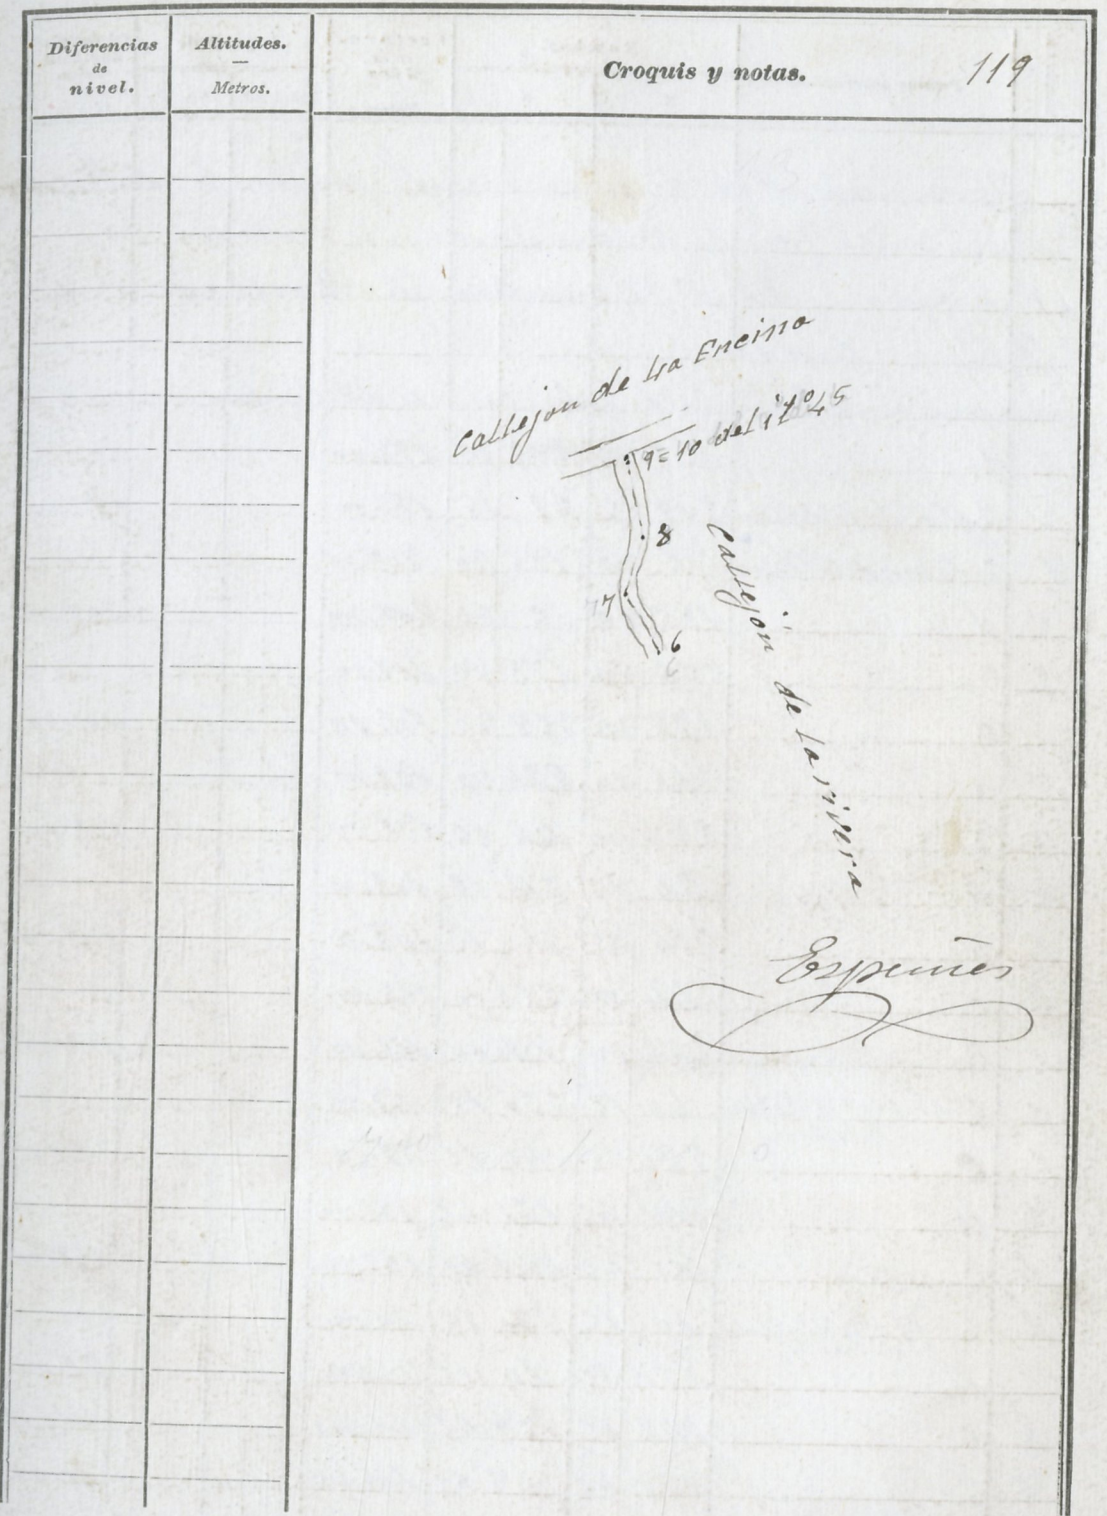 Diferencias
de
nivel.
Altitudes.
Metros.
Croquis y notas.
119
Callejon de La Encina
9=10 del itº 45
8
7
6
Callejón de la rivera